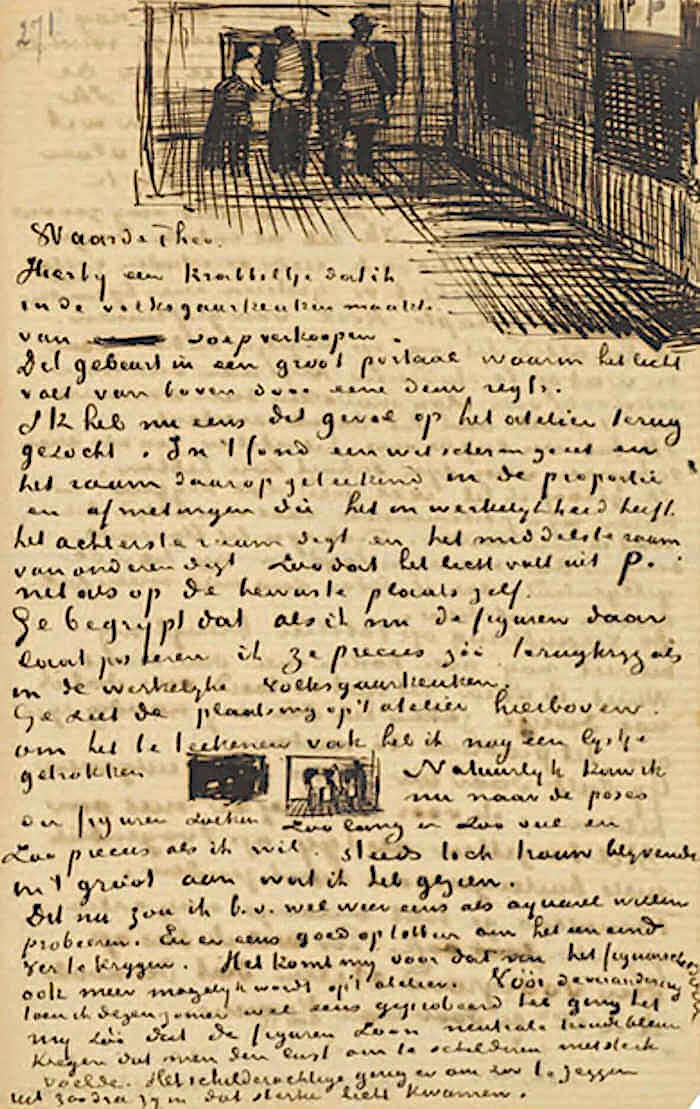 271
P P
Waarde Theo.
Hierby een krabbeltje dat ik
in de volksgaarkeuken maakte
van soepverkoopen.
Dit gebeurt in een groot portaal waarin het licht
valt van boven door eene deur regts.
Ik heb nu eens dit geval op het atelier terug
gezocht. In 't fond een wit scherm gezet en
het raam daarop geteekend in de proportie
en afmetingen die het in werkelykheid heeft
het achterste raam digt en het middelste raam
van onderen digt Zoodat het licht valt uit P.
net als op de bewuste plaats zelf.
Ge begrypt dat als ik nu de figuren daar
laat poseeren ik ze precies zóó terugkryg als
in de werkelyke volksgaarkeuken.
Ge ziet de plaatsing op 't atelier hierboven.
om het te teekenen vak heb ik nog een lystje
getrokken Natuurlyk kan ik
nu naar de poses
der figuren zoeken Zoo lang en Zoo veel en
Zoo precies als ik wil. steeds toch trouw blyvende
in 't groot aan wat ik heb gezien.
Dit nu zou ik b.v. wel weer eens als aquarel willen
probeeren. En er eens goed op tobben om het een eind
ver te krygen. Het komt my voor dat van het figuurschilderen
ook meer mogelyk wordt op 't atelier. Vóór de verandering
toen ik dezen zomer wel eens geprobeerd heb ging het
my zóó dat de figuren Zoo'n neutrale koude kleur
kregen dat men den lust om te schilderen niet sterk
voelde. Het schilderachtige ging er om zoo te zeggen
uit zoodra zy in dat sterke licht kwamen.